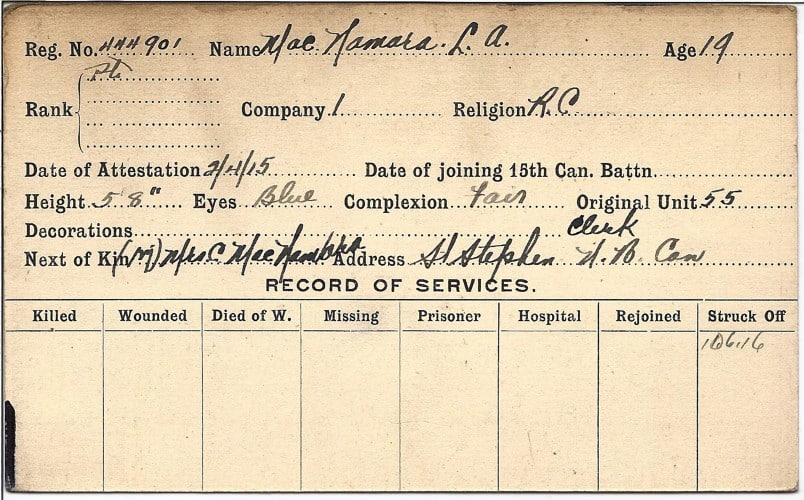 Reg. No. 444901 Name Mac Namara. L. A. Age 19
Pte
Rank Company 1 Religion R.C
Date of Attestation 2/4/15 Date of joining 15th Can. Battn.
Height 5 8" Eyes Blue Complexion Fair Original Unit 55
Decorations Clerk
Next of Kin (M) Mrs C MacNamara Address St Stephen N. B. Can
RECORD OF SERVICES.
Killed Wounded Died of W. Missing Prisoner Hospital Rejoined Struck Off